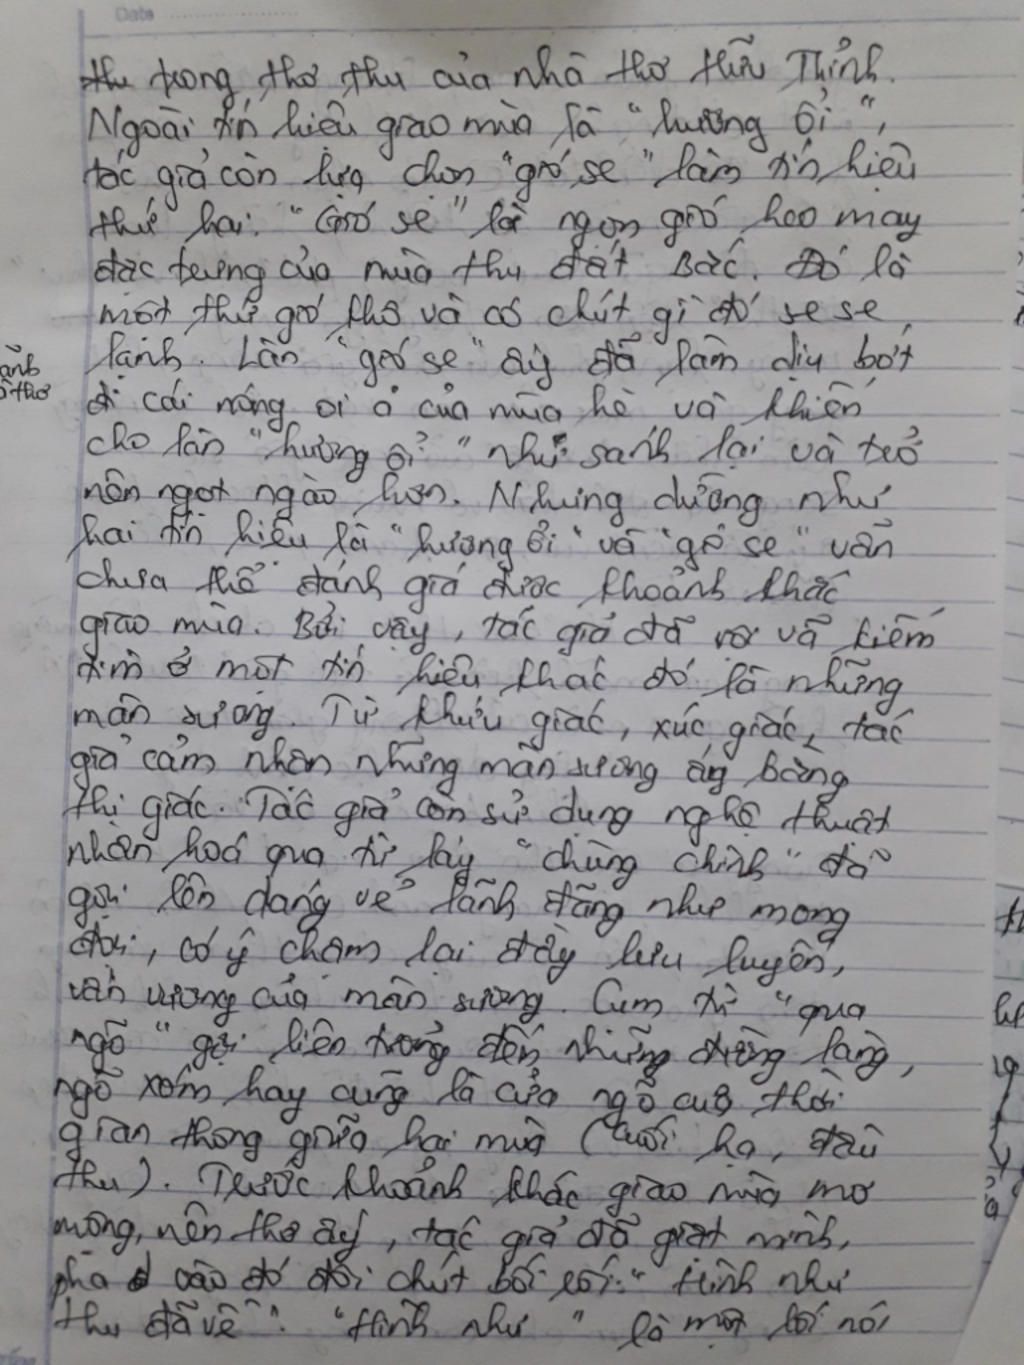 Date
thu trong thơ thu của nhà thơ Hữu Thỉnh.
Ngoài tín hiệu giao mùa là "hương ổi",
tác giả còn lựa chọn "gió se" làm tín hiệu
thứ hai. "Gió se" là ngọn gió heo may
đặc trưng của mùa thu đất Bắc. Đó là
một thứ gió khô và có chút gì đó se se
lạnh. Làn "gió se" ấy đã làm dịu bớt
đi cái nóng oi ả của mùa hè và khiến
cho làn "hương ổi" như sánh lại và trở
nên ngọt ngào hơn. Nhưng dường như
hai tín hiệu là "hương ổi" và "gió se" vẫn
chưa thể đánh giá được khoảnh khắc
giao mùa. Bởi vậy, tác giả đã vội vã kiếm
tìm ở một tín hiệu khác đó là những
màn sương. Từ khứu giác, xúc giác, tác
giả cảm nhận những màn sương ấy bằng
thị giác. Tác giả còn sử dụng nghệ thuật
nhân hoá qua từ láy "chùng chình" đã
gợi lên dáng vẻ lãnh đãng như mong
đợi, cố ý chậm lại đầy lưu luyến,
vấn vương của màn sương. Cụm từ "qua
ngõ" gợi liên tưởng đến những đường làng,
ngõ xóm hay cũng là cửa ngõ của thời
gian thông giữa hai mùa (cuối hạ, đầu
thu). Trước khoảnh khắc giao mùa mơ
mộng, nên thơ ấy, tác giả đã giật mình,
pha vào đó đôi chút bối rối: "Hình như
thu đã về". "Hình như" là một lối nói